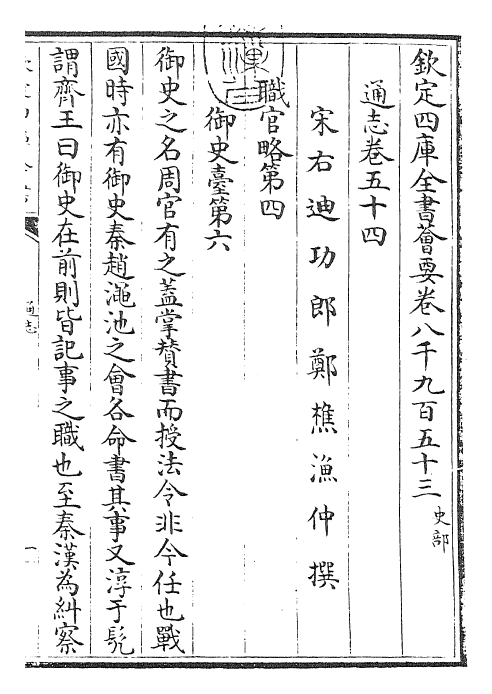 欽定四庫全書薈要卷八千九百五十三 史部
通志卷五十四
宋右迪功郎鄭樵漁仲撰
職官略第四
御史臺第六
御史之名周官有之蓋掌贊書而授法令非今任也戰
國時亦有御史秦趙澠池之會各命書其事又淳于髡
謂齊王曰御史在前則皆記事之職也至秦漢為糾察
通志